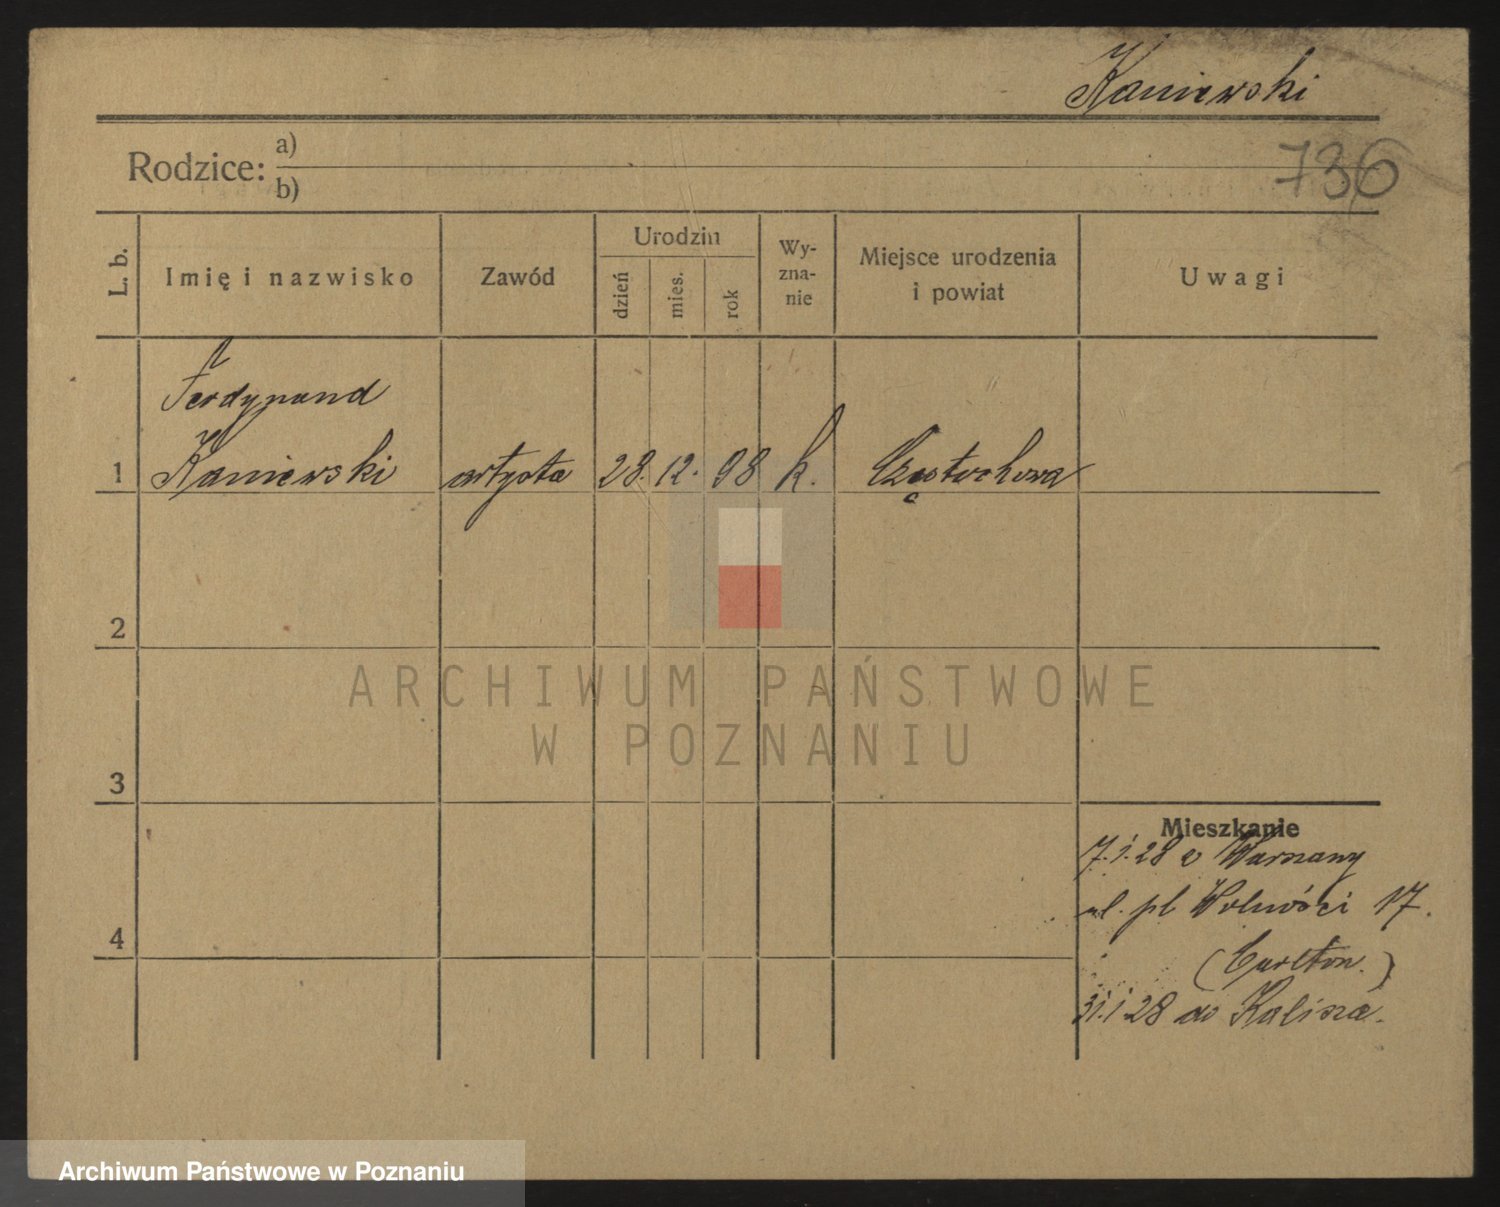 Kaniewski
Rodzice: a)
b)
736
L. b.
Imię i nazwisko
Zawód
Urodzin
dzień
mies.
rok
Wy-
zna-
nie
Miejsce urodzenia
i powiat
Uwagi
Ferdynand
1 Kaniewski artysta 28. 12. 98 k. Częstochowa
2
3
4
Mieszkanie
7.1.28 z Warszawy
ul. pl Wolności 17.
(Carlton.)
31.1.28 do Kalisza.
ARCHIWUM PAŃSTWOWE
W POZNANIU
Archiwum Państwowe w Poznaniu